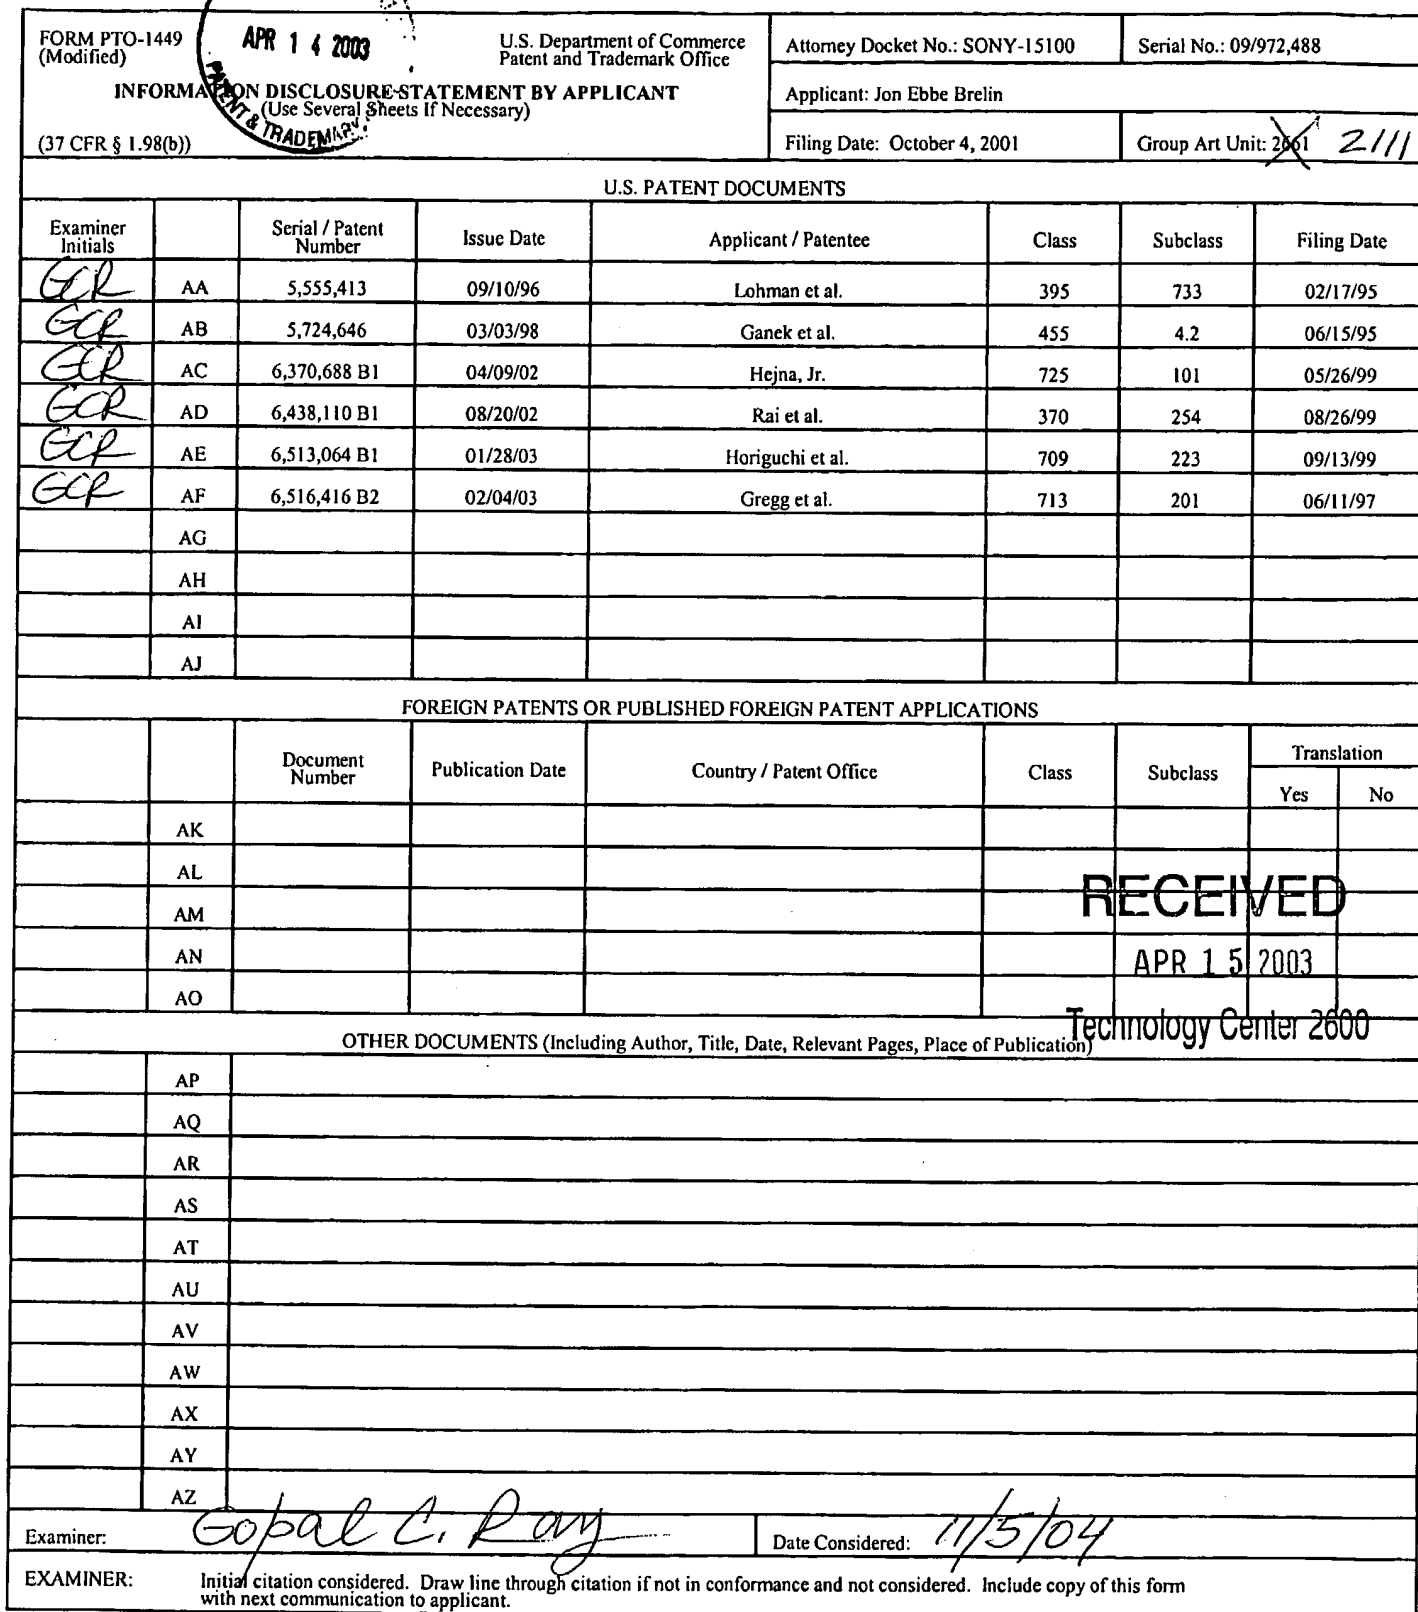 APR 1 4 2003
PATENT & TRADEMARK
FORM PTO-1449
(Modified)
U.S. Department of Commerce
Patent and Trademark Office
INFORMATION DISCLOSURE STATEMENT BY APPLICANT
(Use Several Sheets If Necessary)
(37 CFR § 1.98(b))
Attorney Docket No.: SONY-15100
Serial No.: 09/972,488
Applicant: Jon Ebbe Brelin
Filing Date: October 4, 2001
Group Art Unit: 2661 2111
U.S. PATENT DOCUMENTS
Examiner Initials Serial / Patent Number Issue Date Applicant / Patentee Class Subclass Filing Date
GCR AA 5,555,413 09/10/96 Lohman et al. 395 733 02/17/95
GCR AB 5,724,646 03/03/98 Ganek et al. 455 4.2 06/15/95
GCR AC 6,370,688 B1 04/09/02 Hejna, Jr. 725 101 05/26/99
GCR AD 6,438,110 B1 08/20/02 Rai et al. 370 254 08/26/99
GCR AE 6,513,064 B1 01/28/03 Horiguchi et al. 709 223 09/13/99
GCR AF 6,516,416 B2 02/04/03 Gregg et al. 713 201 06/11/97
AG
AH
AI
AJ
FOREIGN PATENTS OR PUBLISHED FOREIGN PATENT APPLICATIONS
Document Number Publication Date Country / Patent Office Class Subclass Translation
Yes No
AK
AL
AM
AN
AO
RECEIVED
APR 1 5 2003
Technology Center 2600
OTHER DOCUMENTS (Including Author, Title, Date, Relevant Pages, Place of Publication)
AP
AQ
AR
AS
AT
AU
AV
AW
AX
AY
AZ
Examiner: Gopal C. Ray Date Considered: 11/5/04
EXAMINER: Initial citation considered. Draw line through citation if not in conformance and not considered. Include copy of this form
with next communication to applicant.